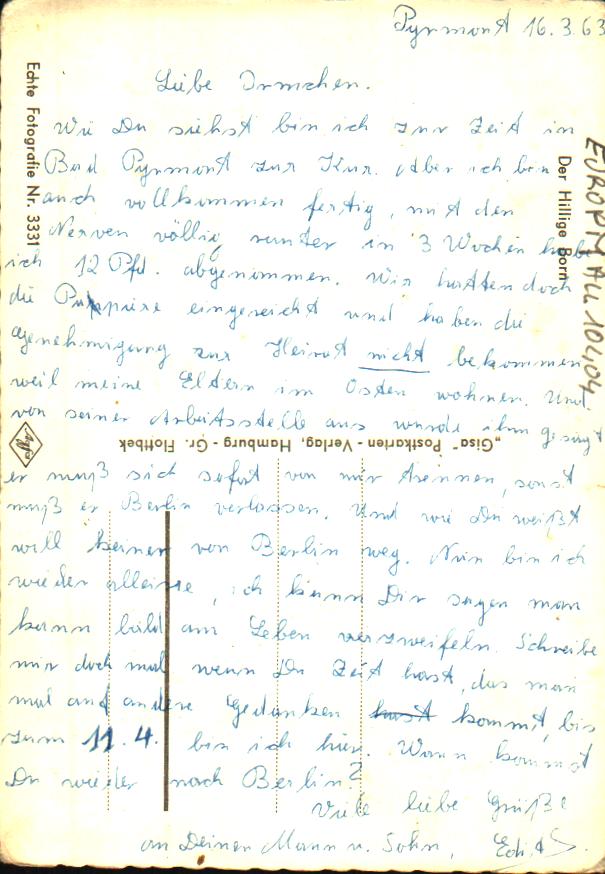 Pyrmont 16.3.63
Liebe Irmchen.
Wie Du siehst bin ich zur Zeit in
Bad Pyrmont zur Kur. Aber ich bin
auch vollkommen fertig, mit den
Nerven völlig runter in 3 Wochen habe
ich 12 Pfd. abgenommen. Wir hatten doch
die Papiere eingereicht und haben die
Genehmigung zur Heirat nicht bekommen
weil meine Eltern im Osten wohnen. Und
von seiner Arbeitsstelle aus wurde ihm gesagt
er muß sich sofort von mir trennen, sonst
muß er Berlin verlassen. Und wie Du weißt
will keiner von Berlin weg. Nun bin ich
wieder alleine, ich kann Dir sagen man
kann bald am Leben verzweifeln. Schreibe
mir doch mal wenn Du Zeit hast, das man
mal auf andere Gedanken kommt, bis
zum 11.4. bin ich hier. Wann kommst
Du wieder nach Berlin?
Viele liebe Grüße
an Deinen Mann u. Sohn,
Echte Fotografie Nr. 3331
Der Hillige Born
„Gisa" Postkarten - Verlag, Hamburg - Gr. Flottbek
Agfa